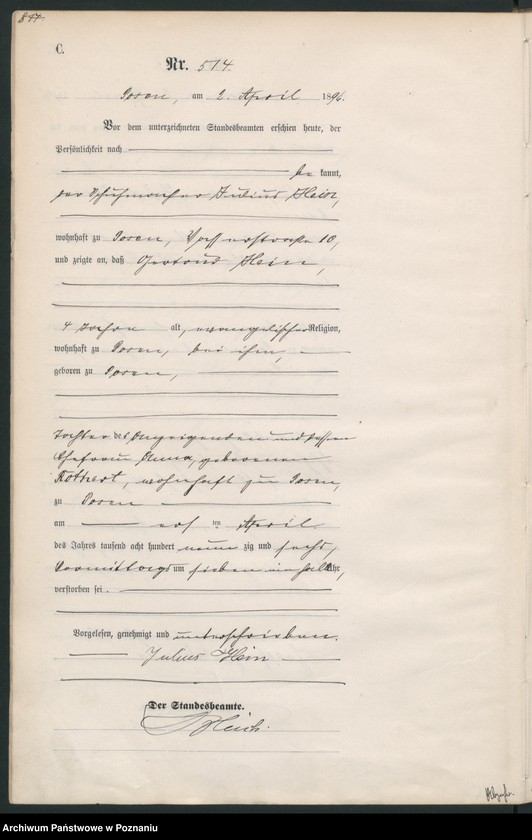 C.
Nr. 514.
Posen, am 2. April 1896.
Vor dem unterzeichneten Standesbeamten erschien heute, der
Persönlichkeit nach
be kannt,
der Schuhmacher Julius Hein,
wohnhaft zu Posen, Wasserstraße 10,
und zeigte an, daß Gertrud Hein,
4 Wochen alt, evangelischer Religion,
wohnhaft zu Posen, bei ihm,
geboren zu Posen,
Tochter des Anzeigenden und dessen
Ehefrau Anna, geborenen
wohnhaft zu Posen,
zu Posen
am ersten April
des Jahres tausend acht hundert neunzig und sechs,
Vormittags um sieben ein halb Uhr,
verstorben sei.
Vorgelesen, genehmigt und unterschrieben.
Julius Hein
Der Standesbeamte.
Archiwum Państwowe w Poznaniu